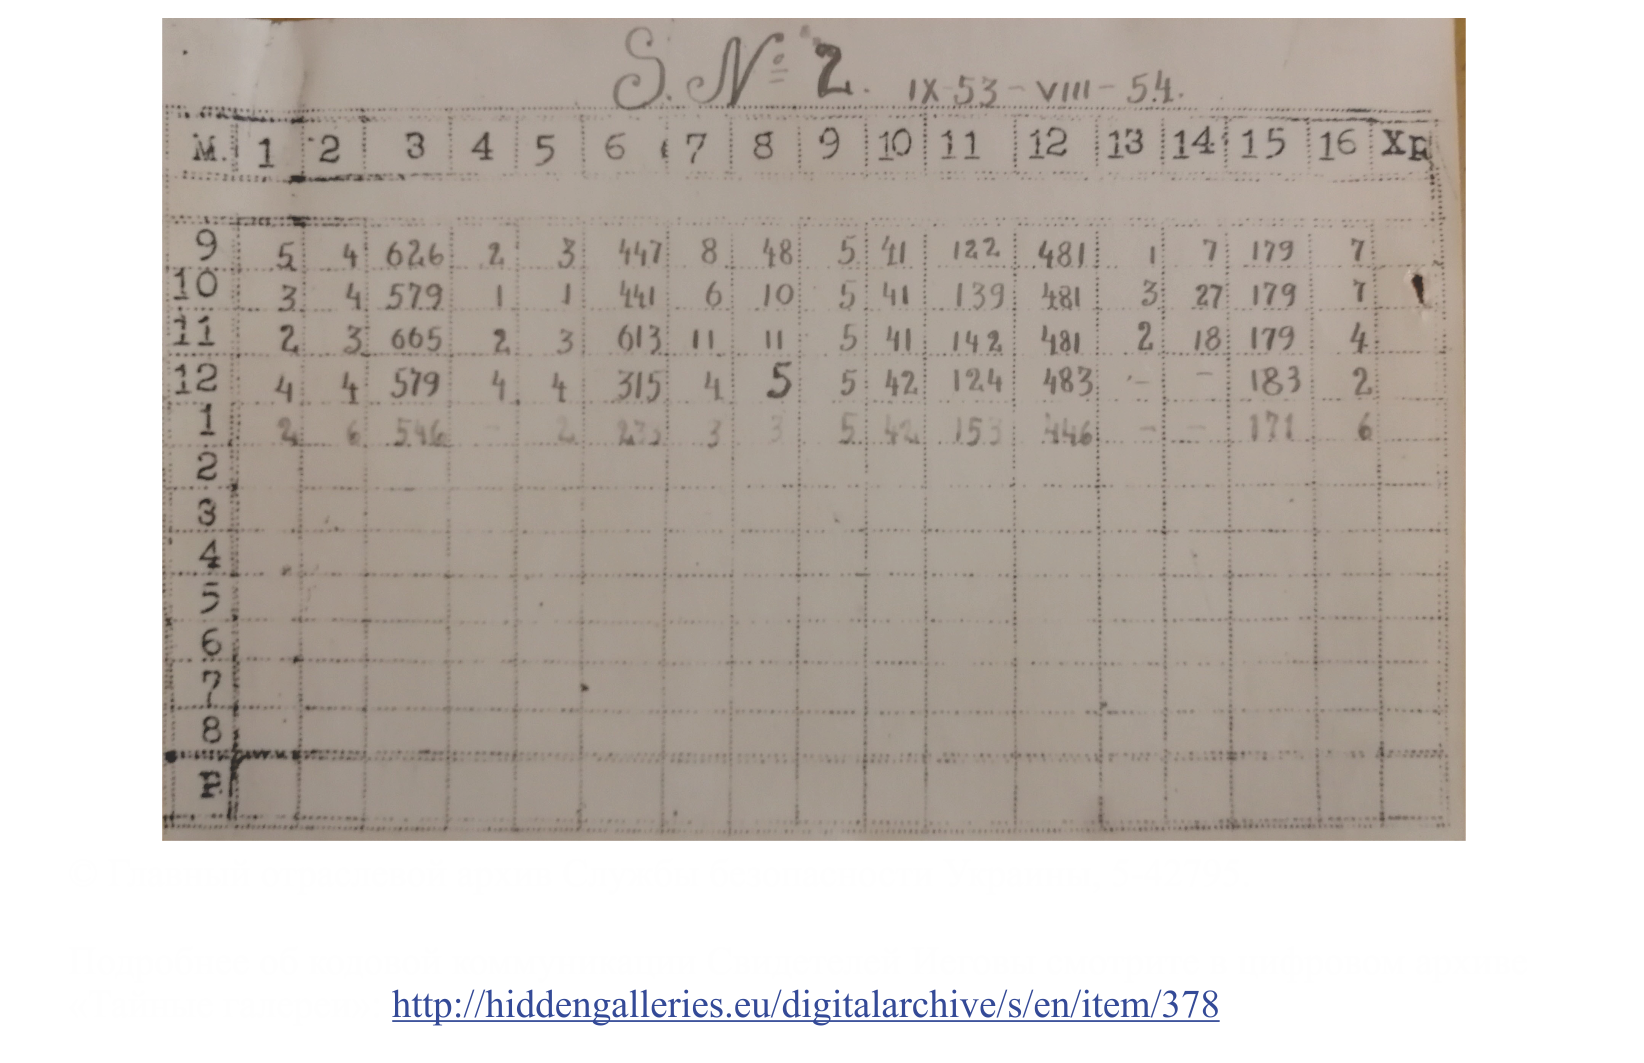 S. № 2. IX 53 - VIII - 54.
M. 1 2 3 4 5 6 7 8 9 10 11 12 13 14 15 16 XP
9 5 4 626 2 3 447 8 48 5 41 122 481 1 7 179 7
10 3 4 579 1 1 441 6 10 5 41 139 481 3 27 179 7
11 2 3 665 2 3 613 11 11 5 41 142 481 2 18 179 4
12 4 4 579 4 4 315 4 5 5 42 124 483 - - 183 2
1 2 6 546 - 2 3 3 5 42 153 446 - - 171 6
2
3
4
5
6
7
8
http://hiddengalleries.eu/digitalarchive/s/en/item/378